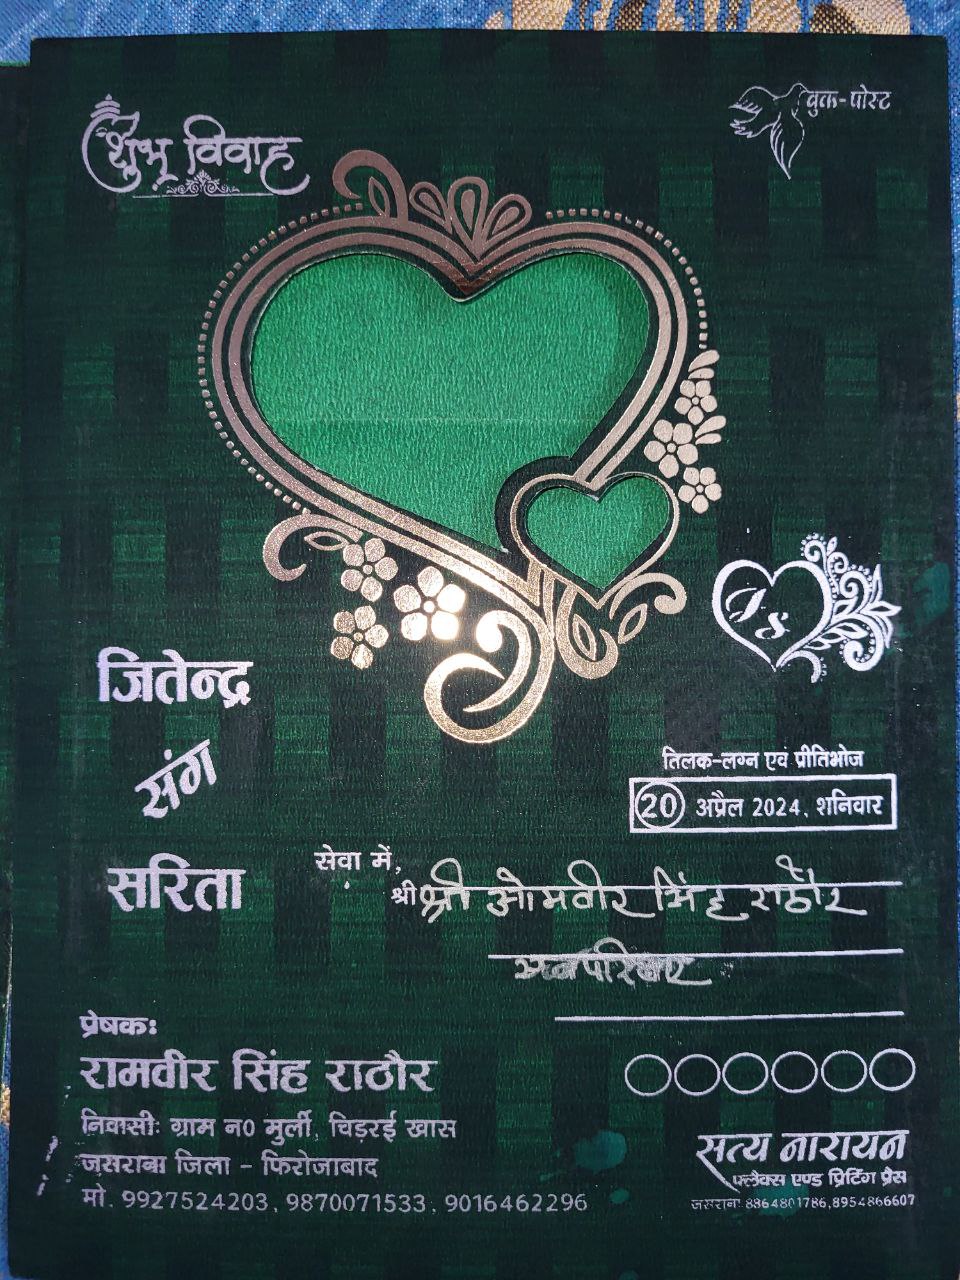 शुभ विवाह
बुक-पोस्ट
Js
जितेन्द्र
संग
सरिता
तिलक-लग्न एवं प्रीतिभोज
20 अप्रैल 2024, शनिवार
सेवा में,
श्री श्री ओमवीर सिंह राठौर
प्रेषकः
रामवीर सिंह राठौर
निवासीः ग्राम न0 मुर्ली, चिड़रई खास
जसराना जिला - फिरोजाबाद
मो. 9927524203, 9870071533, 9016462296
सत्य नारायन
फ्लैक्स एण्ड प्रिटिंग प्रेस
जसराना: 8864801786,8954866607